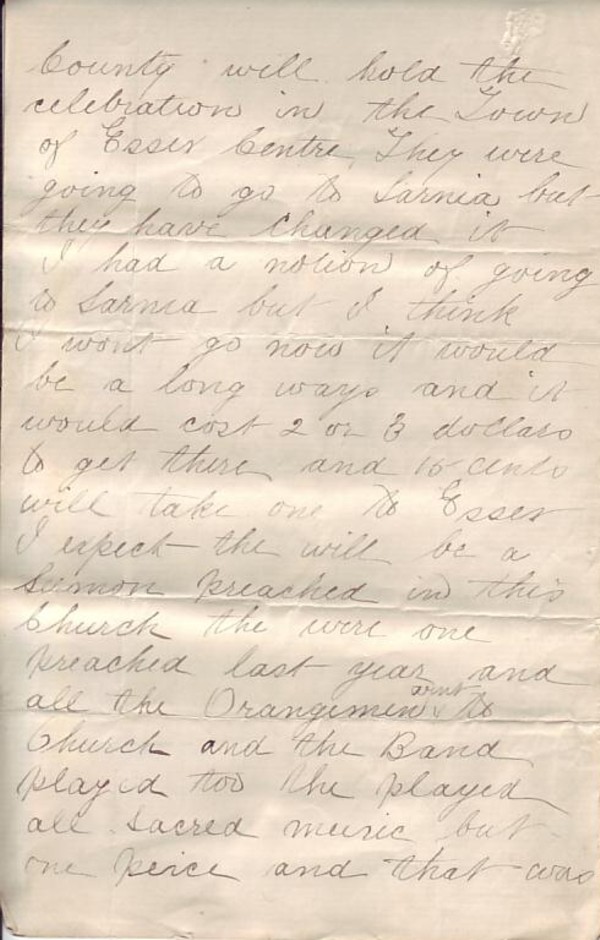 County will hold the
celebration in the Town
of Essex Centre They were
going to go to Sarnia but
they have changed it
I had a notion of going
to Sarnia but I think
I wont go now it would
be a long ways and it
would cost 2 or 3 dollars
to get there and 15 cents
will take one to Essex
I expect the will be a
Sermon preached in this
Church the were one
preached last year and
all the Orangemen to
Church and the Band
played too the played
all sacred music but
one peice and that was